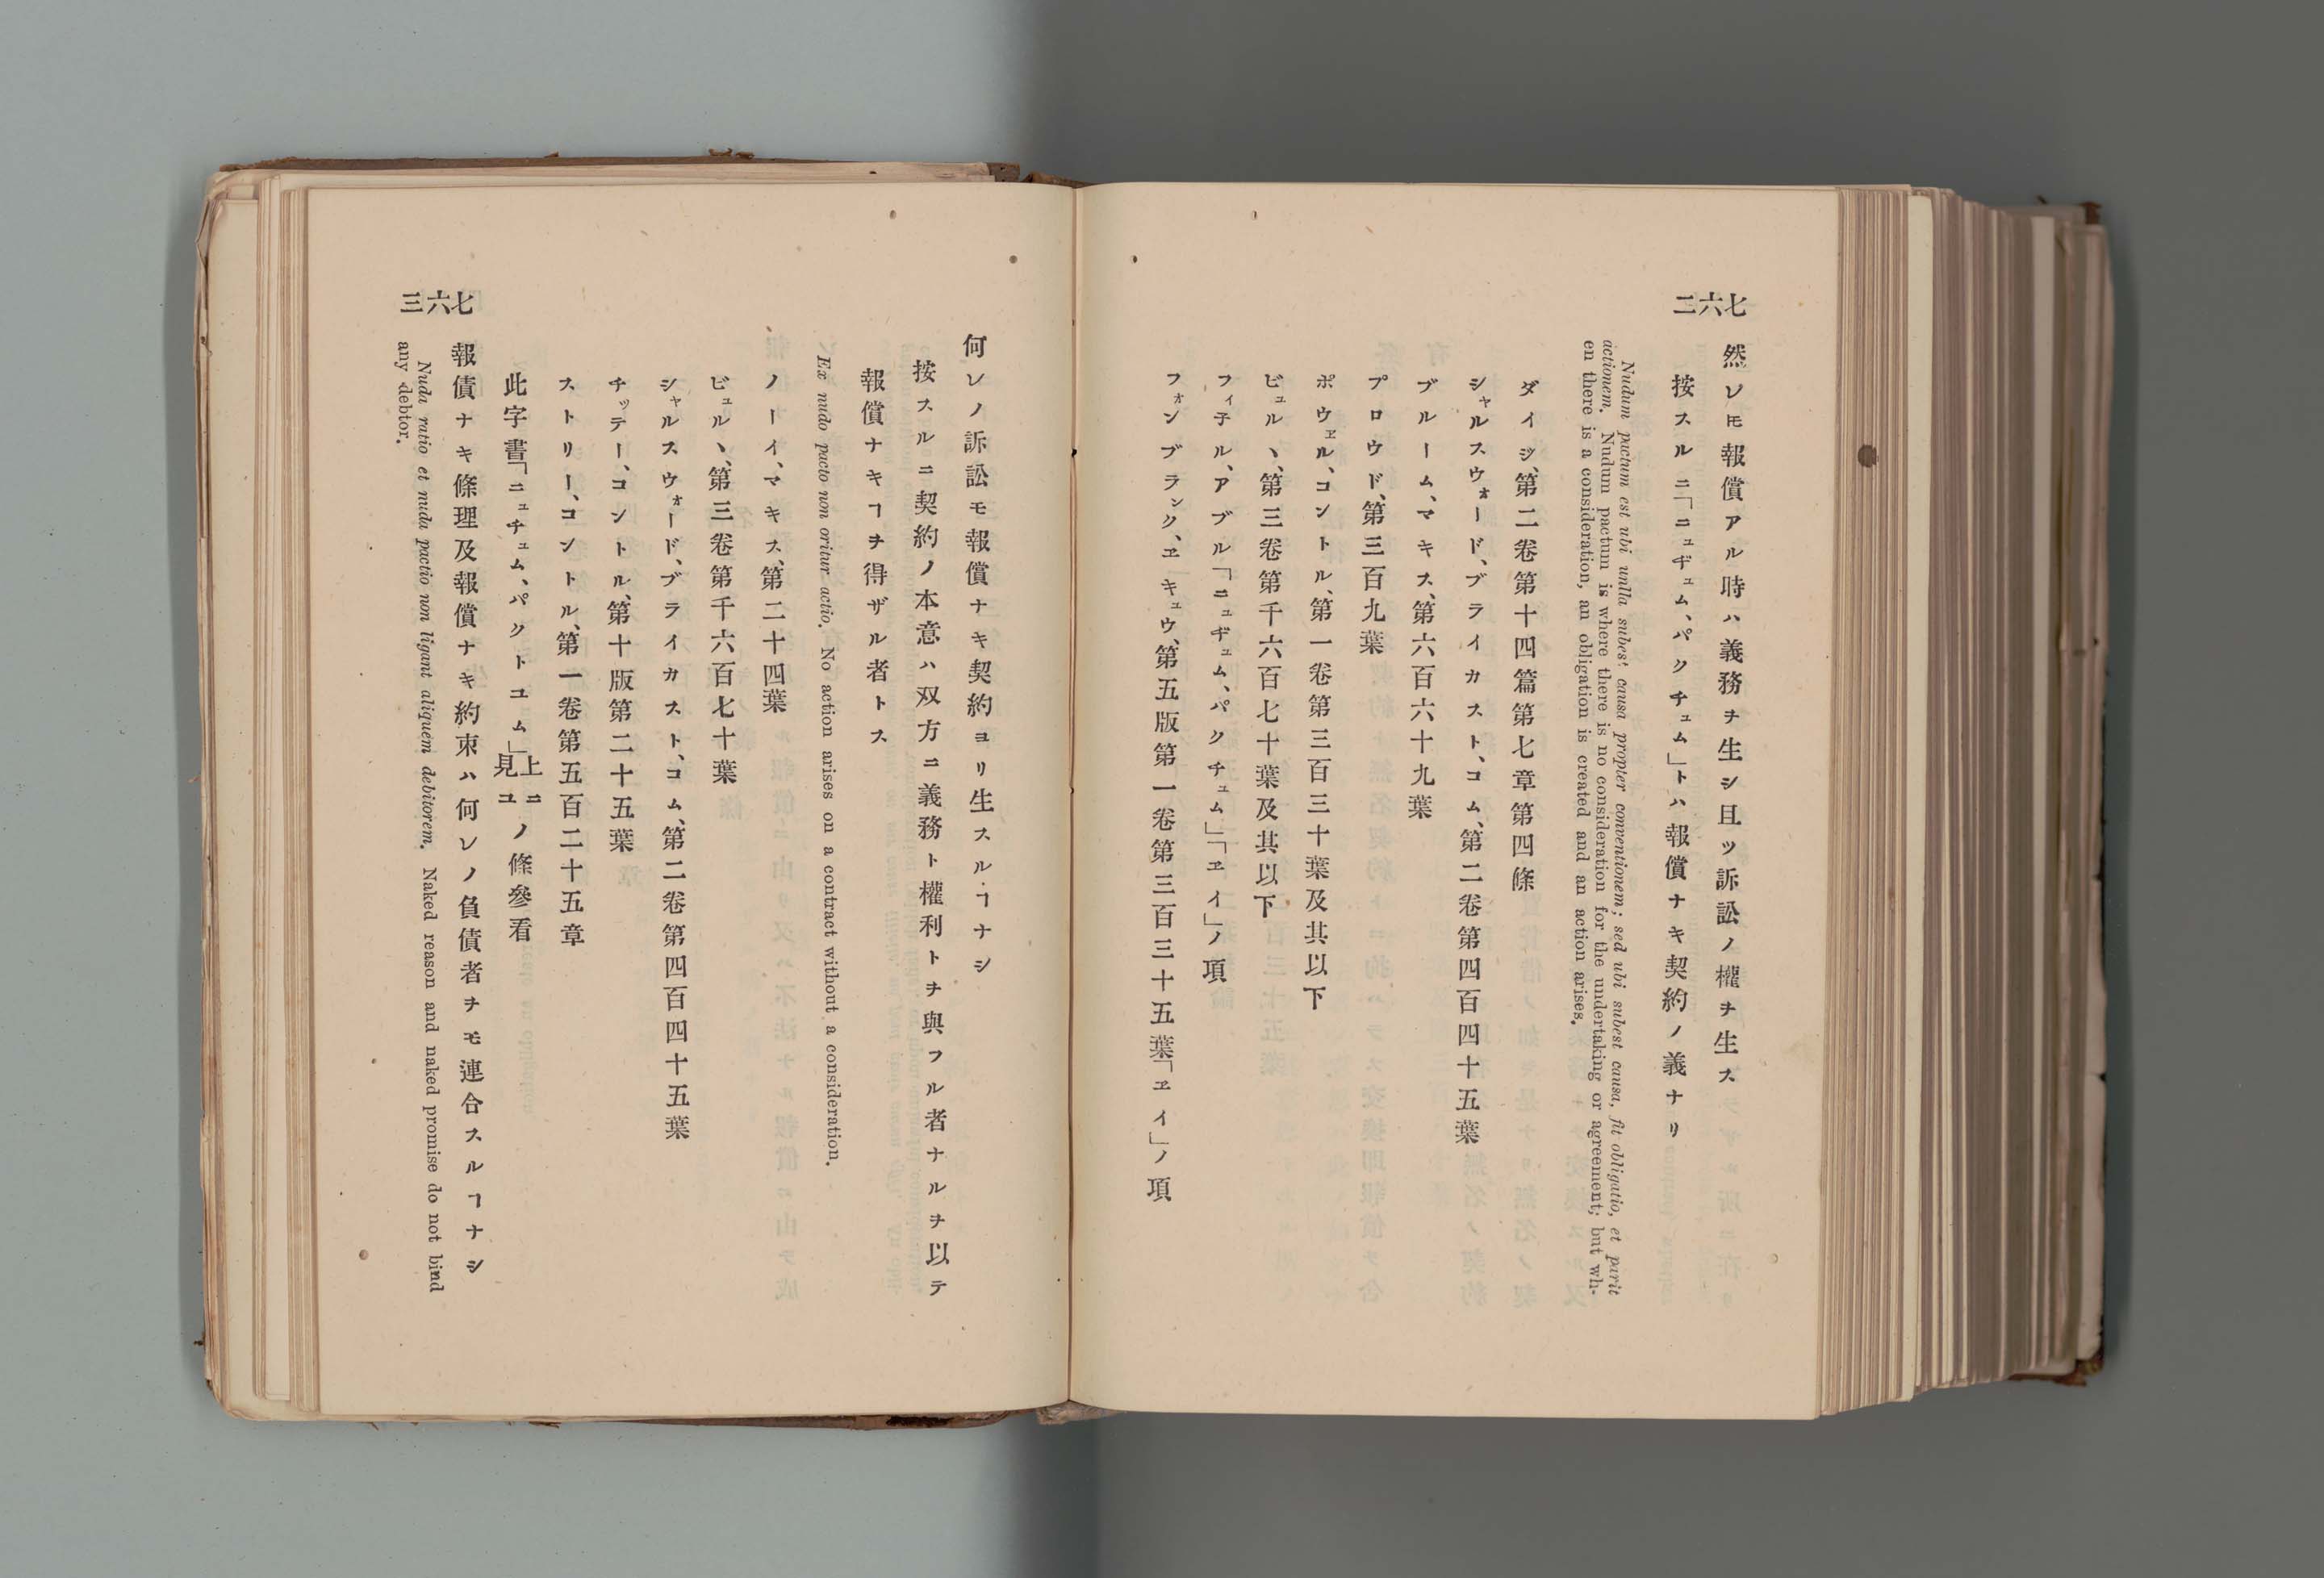 二六七
然レ𪜈報償アル時ハ義務ヲ生シ且ツ訴訟ノ權ヲ生ス
按スルニ「ニュヂュム、パクチュム」トハ報償ナキ契約ノ義ナリ
Nudum pactum est ubi unlla subest causa propter conventionem; sed ubi subest causa, fit obligatio, et parit
actionem. Nudum pactum is where there is no consideration for the undertaking or agreement; but wh-
en there is a consideration, an obligation is created and an action arises.
ダイジ、第二卷第十四篇第七章第四條
シャルスウォード、ブライカスト、コム、第二卷第四百四十五葉
ブルーム、マキス、第六百六十九葉
プロウド、第三百九葉
ポウェル、コントル、第一卷第三百三十葉及其以下
ビュル、、第三卷第千六百七十葉及其以下
フィ子ル、アブル「ニュヂュム、パクチュム」「ヱイ」ノ項
フォンブランク、ヱキュウ、第五版第一卷第三百三十五葉「ヱイ」ノ項
三六七
何レノ訴訟モ報償ナキ契約ヨリ生スルヿナシ
按スルニ契約ノ本意ハ双方ニ義務ト權利トヲ與フル者ナルヲ以テ
報償ナキヿヲ得ザル者トス
Ex nudo pacto non oritur actio. No action arises on a contract without a consideration.
ノーイ、マキス、第二十四葉
ビュル、、第三卷第千六百七十葉
シャルスウォード、ブライカスト、コム、第二卷第四百四十五葉
チッテー、コントル、第十版第二十五葉
ストリー、コントル、第一卷第五百二十五章
此字書「ニュチュム、パクトユム」上ニ見ユノ條參看
報債ナキ條理及報償ナキ約束ハ何レノ負債者ヲモ連合スルヿナシ
Nuda ratio et nuda pactio non ligant aliquem debitorem. Naked reason and naked promise do not bind
any debtor.